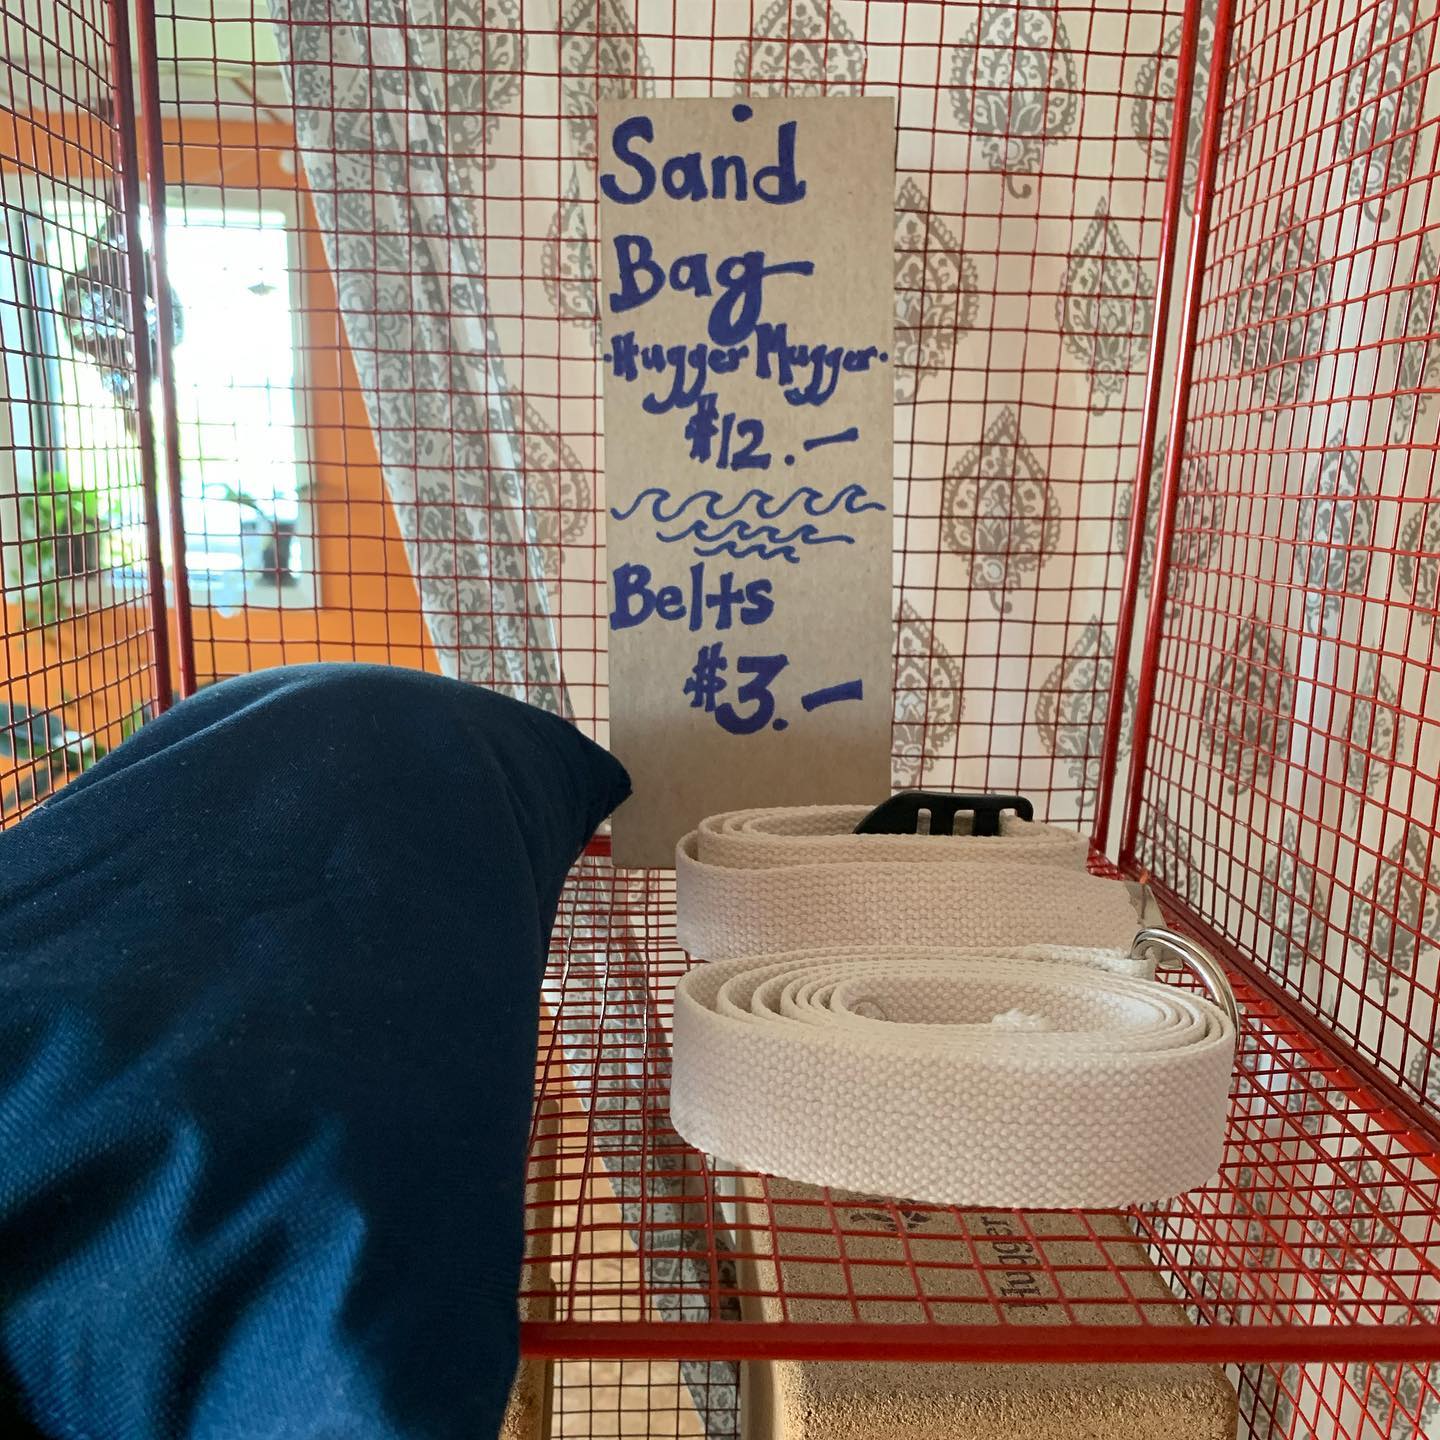 Sand
Bag
·Hugger Mugger·
$12.—
Belts
$3.—
Hugger